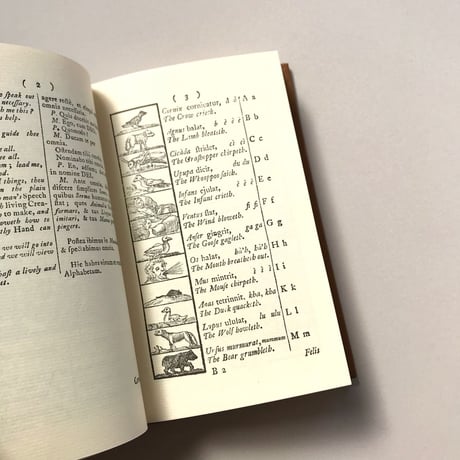 ( 2 )
speak out
necessary.
help.
guide
all.
all.
lead me,
things, then
the plain
man's Speech
living Crea-
to make, and
how to
Hand can
we will go into
we will view
hast a lively and
agere rectè, et
omnia
P. Quis
M. Ego, cum
P. Quomodo?
M. Ducam te per
omnia.
Ostendam
Nominabo
P. En,
in nomine
M. Ante omnia,
discere simplices
quibus Sermo
Postea ibimus in
& spectabimus
Hic habes
Alphabetum.
( 3 )
Cornix cornicatur, à à A a
The Crow crieth.
Agnus balat, b è è è B b
The Lamb blaiteth.
Cicàda stridet, cì cì C c
The Grashopper chirpeth.
Upupa dicit, du du D d
The Whooppoo saith.
Infans ejulat, è è è E e
The Infant crieth.
Ventus flat, fi fi F f
The Wind bloweth.
Anser gingrit, ga ga G g
The Goose gagleth.
Os halat, hà'h, hà'h H h
The Mouth breatheth out.
Mus mintrit, ì ì ì I i
The Mouse chirpeth.
Anas tetrinnit, kha, kha K k
The Duck quacketh.
Lupus ululat, lu ulu L l
The Wolf howleth.
Ursus murmurat, mummum M m
The Bear grumbleth.
B 2
Felis